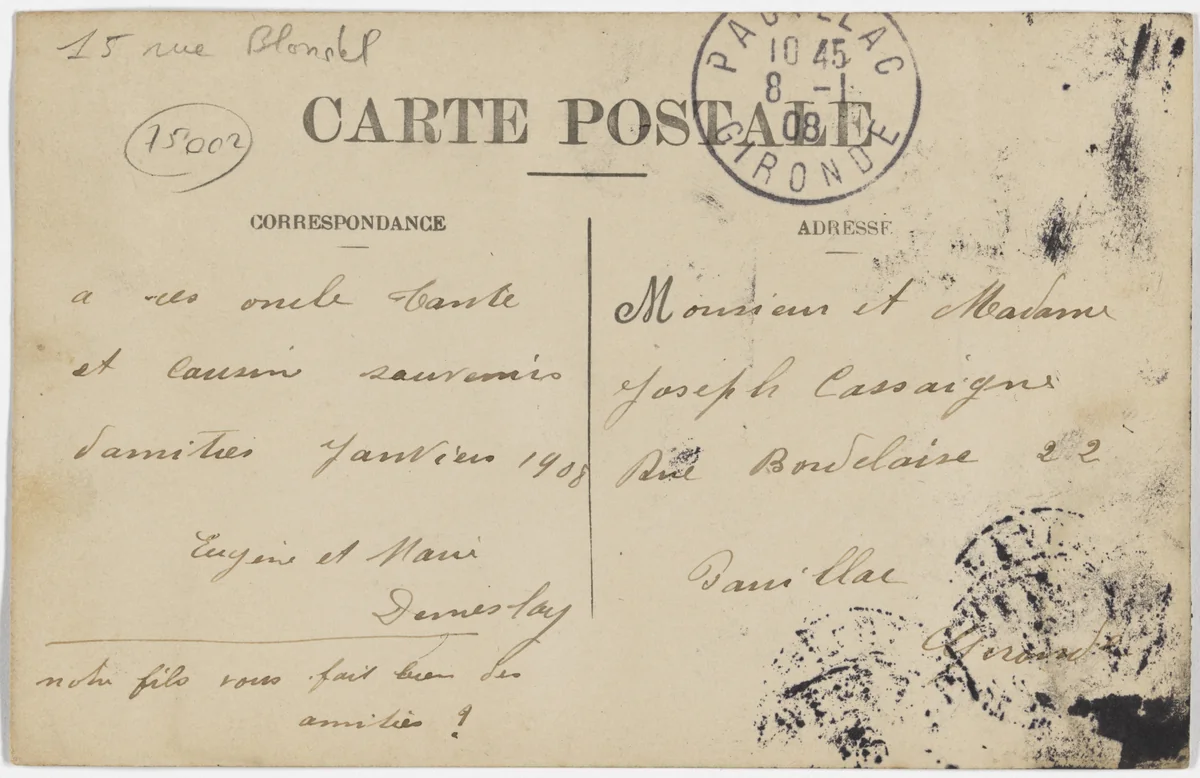 15 rue Blondel
15002
CARTE POSTALE
PAUILLAC
10 45
8 -1
08
GIRONDE
CORRESPONDANCE
ADRESSE
a ses oncle tante
et cousin souvenirs
damities Janvier 1908
Eugène et Marie
Demeslay
notre fils vous fait bien des
amitiés !
Monsieur et Madame
Joseph Cassaigne
Rue Bordelaise 22
Pauillac
Gironde